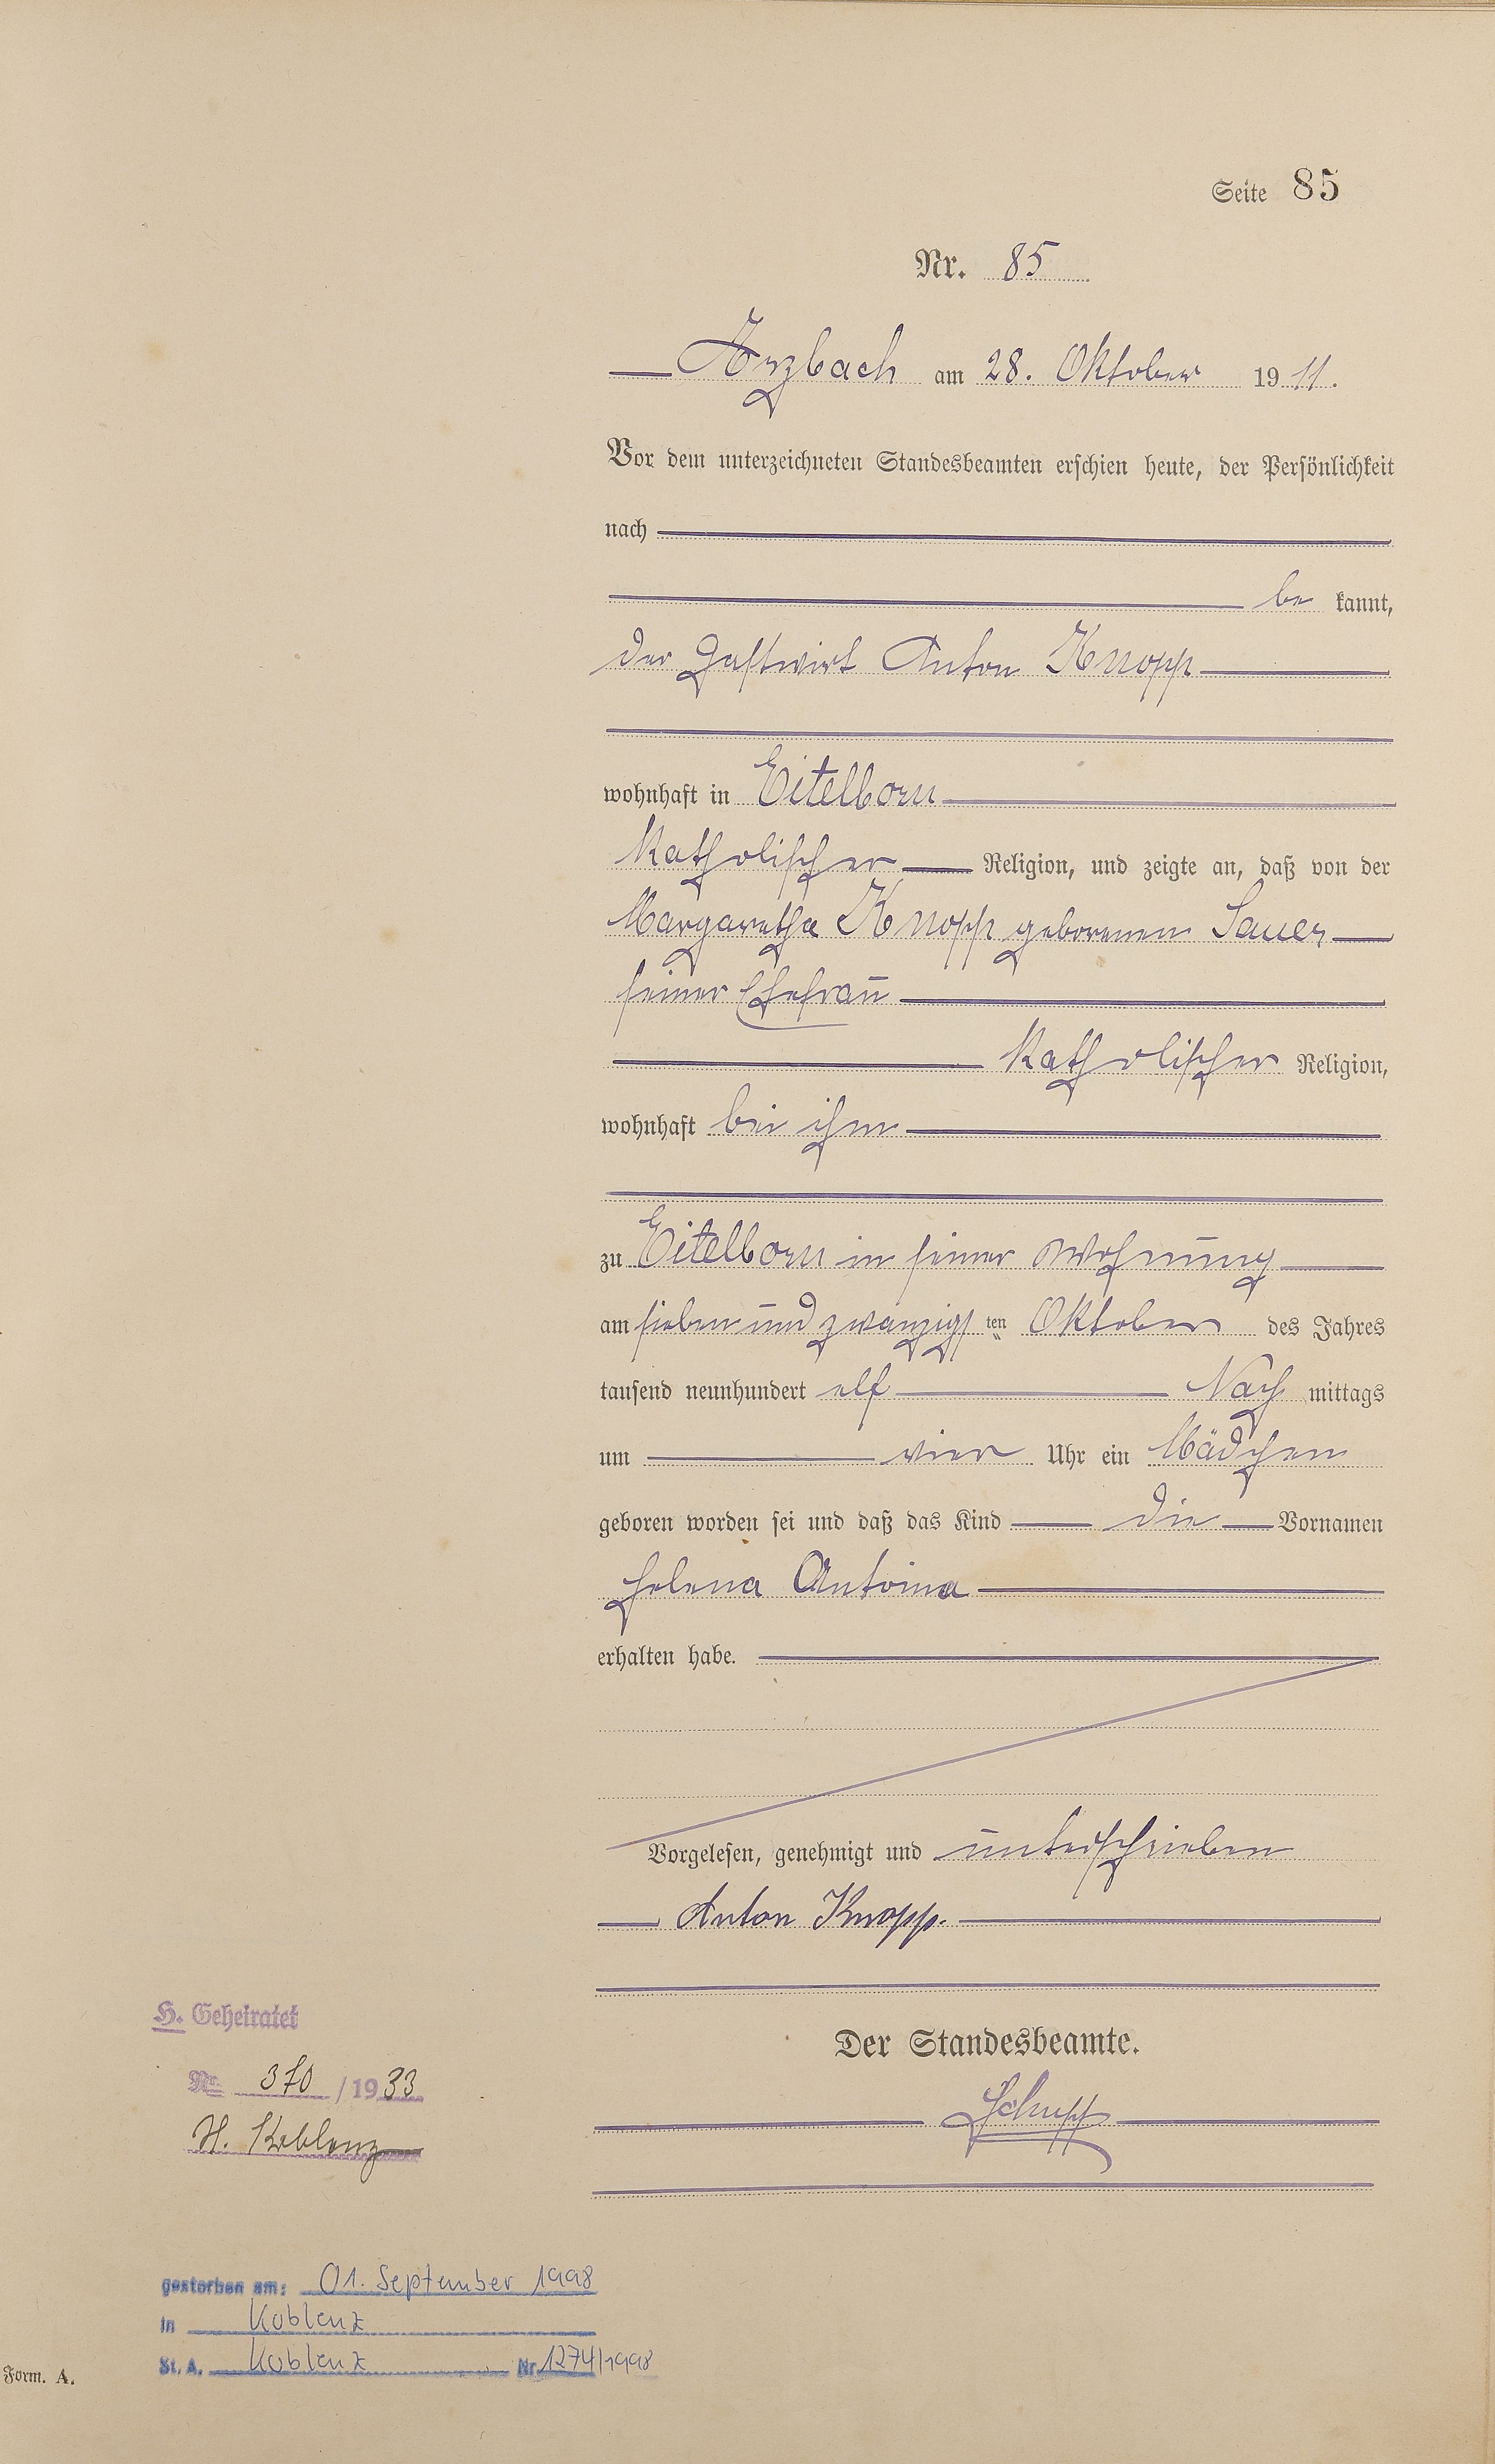 Seite 85
Nr. 85
Arzbach am 28. Oktober 1911.
Vor dem unterzeichneten Standesbeamten erschien heute, der Persönlichkeit
nach
be kannt,
der Gastwirt Anton Knopp
wohnhaft in Eitelborn
katholischer Religion, und zeigte an, daß von der
Margaretha Knopp geborenen Sauer
seiner Ehefrau
katholischer Religion,
wohnhaft bei ihm
zu Eitelborn in seiner Wohnung
am sieben und zwanzigsten Oktober des Jahres
tausend neunhundert elf Nach mittags
um vier Uhr ein Mädchen
geboren worden sei und daß das Kind die Vornamen
Helena Antonia
erhalten habe.
Vorgelesen, genehmigt und unterschrieben
Anton Knopp.
Der Standesbeamte.
Schupp
H. Geheiratet
Nr. 370 / 1933
St. Koblenz
gestorben am: 01. September 1998
in Koblenz
St. A. Koblenz Nr 1274/1998
Form. A.